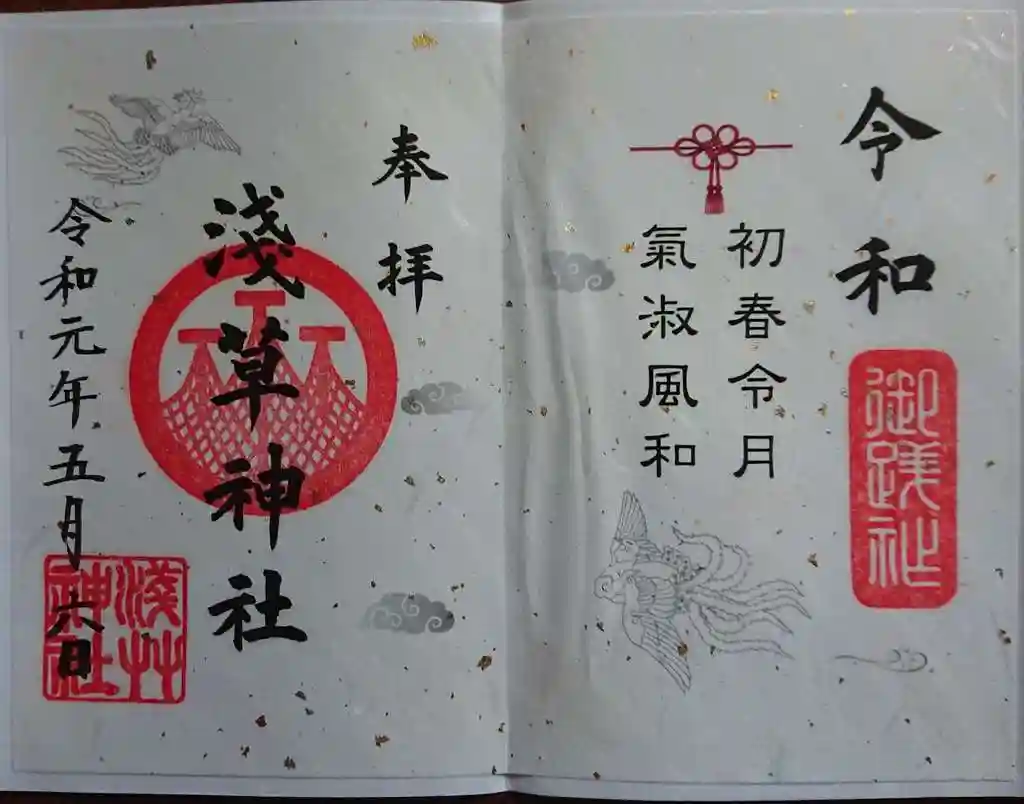 令和
御踐祚
初春令月
氣淑風和
奉拝
淺草神社
令和元年五月六日
淺草
神社